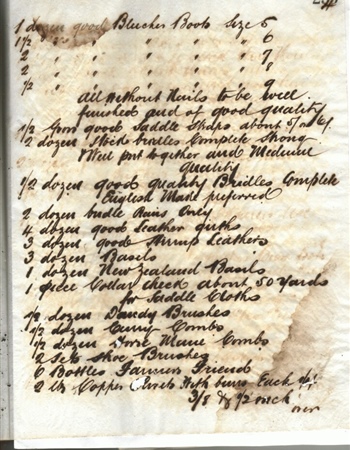 1 dozen good Blucher Boots Size 5
1 1/2 " " " " " 6
2 " " " " 7
2 " " " " 8
1/2 " " " " 9
all without Nails to be well
finished and of good quality
1/2 Gross good Saddle Straps about 5/- or 6/-
2 dozen Stock bridles Complete Strong
Well put together and Medium
quality
1/2 dozen good quality Bridles Complete
English Make preferred
2 dozen bridle Rains Only
4 dozen good Leather Girths
3 dozen good Stirrup Leathers
3 dozen Basils
1 dozen New Zealand Basils
1 piece Collar Check about 50 Yards
for Saddle Cloths
1/2 dozen Dandy Brushes
1/2 dozen Curry Combs
1/2 dozen Horse Mane Combs
2 Sets Shoe Brushes
6 Bottles Farmers Friend
2 lbs Copper Rivets With burrs Each
3/8 & 1/2 inch